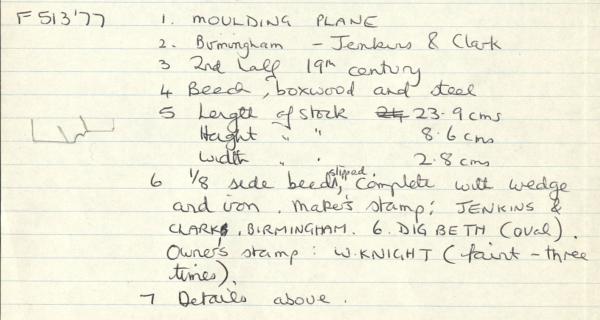 F513'77
1. MOULDING PLANE
2. Birmingham - Jenkins & Clark
3 2nd half 19th century
4 Beech, boxwood and steel
5 Length of stock 24 23.9 cms
Height " " 8.6 cms
Width " " 2.8 cms
6 1/8 side bead, slipped. Complete with wedge
and iron. Maker's stamp: JENKINS &
CLARK, BIRMINGHAM. 6. DIGBETH (oval).
Owner's stamp: W. KNIGHT (faint - three
times).
7 Details above.